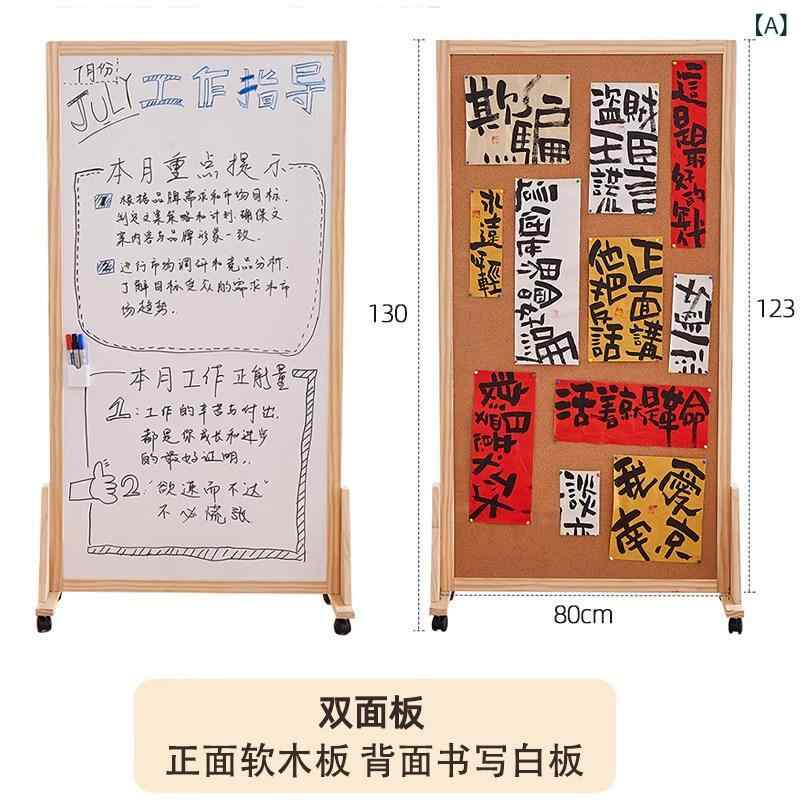 【A】
7月份:
JULY 工作指导
本月重点提示
1 根据品牌需求和市场目标.
制定文案策略和计划.确保文
案内容与品牌形象一致.
2 进行市场调研和竞品分析.
了解目标受众的需求和市
场趋势.
本月工作正能量
1:工作的辛苦与付出.
都是你成长和进步
的最好证明.
2."欲速而不达"
不必慌张
130
欺騙
盜賊
臣言
王謊
這是最好的年代
永遠年輕
正面講
他把反話
活著就是革命
談
我愛
南京
123
80cm
双面板
正面软木板 背面书写白板